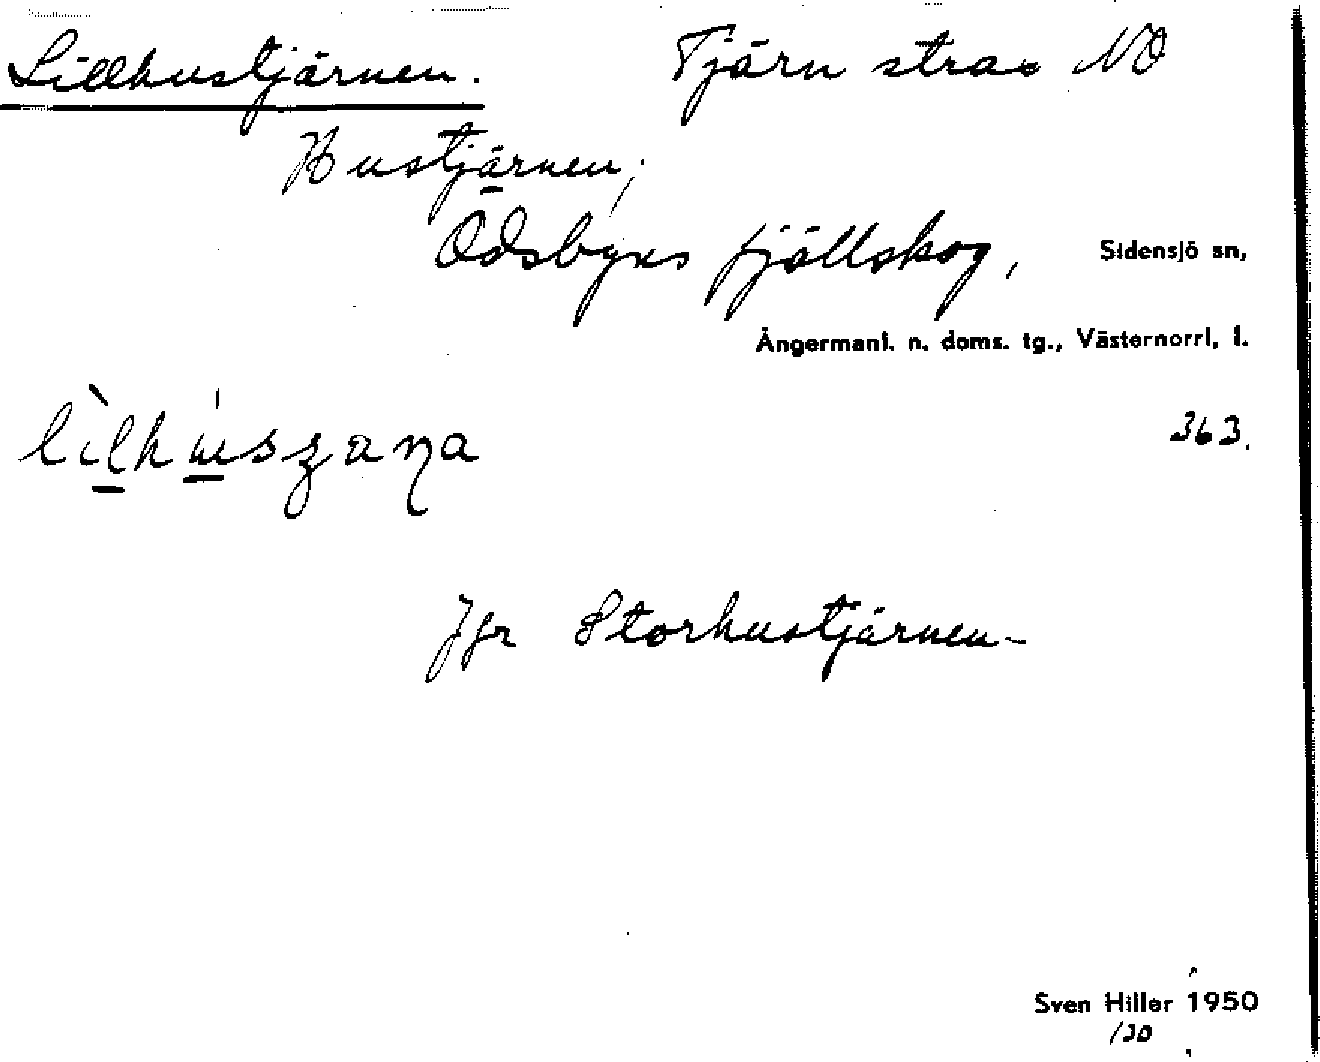 Lillhustjärnen. Tjärn strax NO
Hustjärnen,
Ödsbyns fjällskog, Sidensjö sn,
Ångermanl. n. doms. tg., Västernorrl. l.
363.
Jfr Storhustjärnen
Sven Hiller 1950